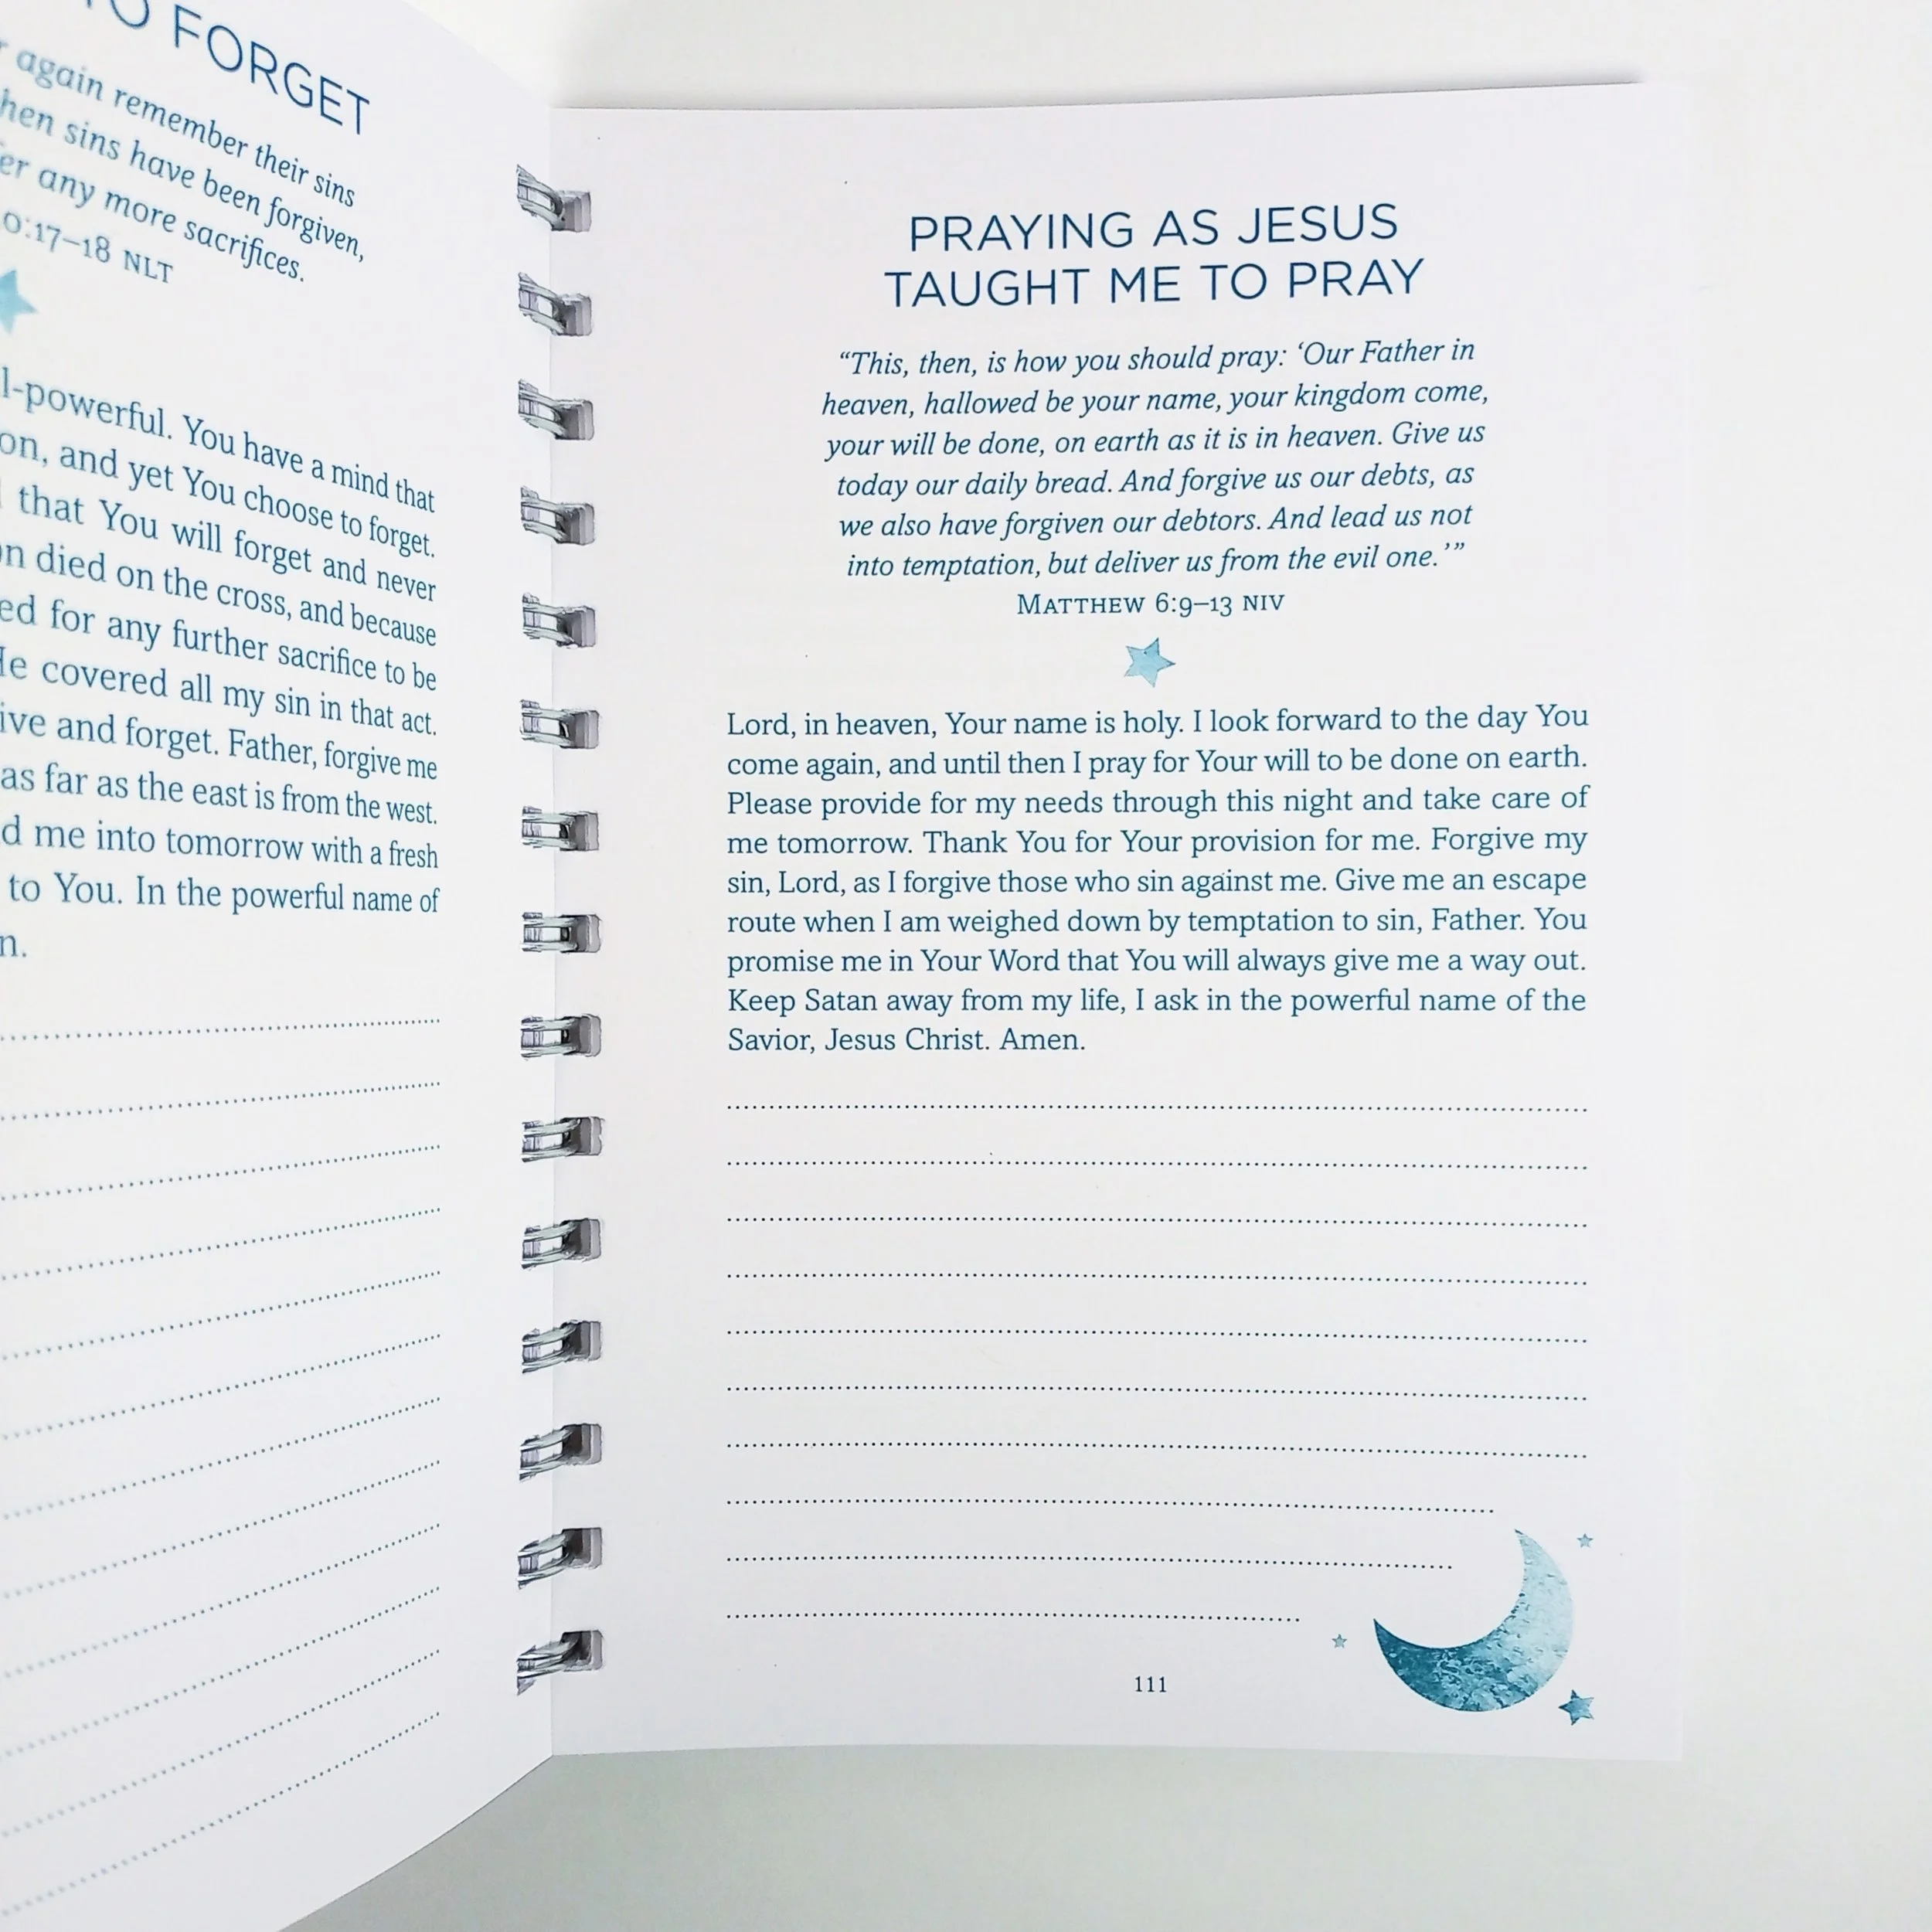 TO FORGET
again remember their sins
hen sins have been forgiven,
er any more sacrifices.
0:17–18 NLT
l-powerful. You have a mind that
on, and yet You choose to forget.
that You will forget and never
on died on the cross, and because
ed for any further sacrifice to be
He covered all my sin in that act.
ive and forget. Father, forgive me
as far as the east is from the west.
d me into tomorrow with a fresh
to You. In the powerful name of
n.
PRAYING AS JESUS
TAUGHT ME TO PRAY
“This, then, is how you should pray: ‘Our Father in
heaven, hallowed be your name, your kingdom come,
your will be done, on earth as it is in heaven. Give us
today our daily bread. And forgive us our debts, as
we also have forgiven our debtors. And lead us not
into temptation, but deliver us from the evil one.’”
MATTHEW 6:9–13 NIV
Lord, in heaven, Your name is holy. I look forward to the day You
come again, and until then I pray for Your will to be done on earth.
Please provide for my needs through this night and take care of
me tomorrow. Thank You for Your provision for me. Forgive my
sin, Lord, as I forgive those who sin against me. Give me an escape
route when I am weighed down by temptation to sin, Father. You
promise me in Your Word that You will always give me a way out.
Keep Satan away from my life, I ask in the powerful name of the
Savior, Jesus Christ. Amen.
111